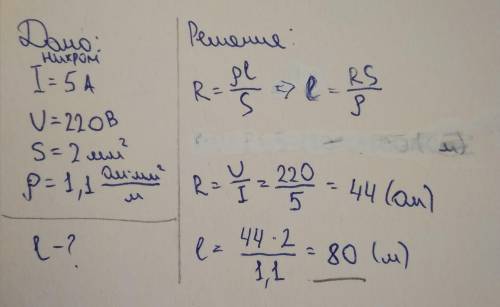 Дано:
нихром
I = 5 А
U = 220 В
S = 2 мм²
ρ = 1,1 Ом·мм²/м
l - ?
Решение:
R = ρl/S => l = RS/ρ
R = U/I = 220/5 = 44 (Ом)
l = 44 · 2/1,1 = 80 (м)